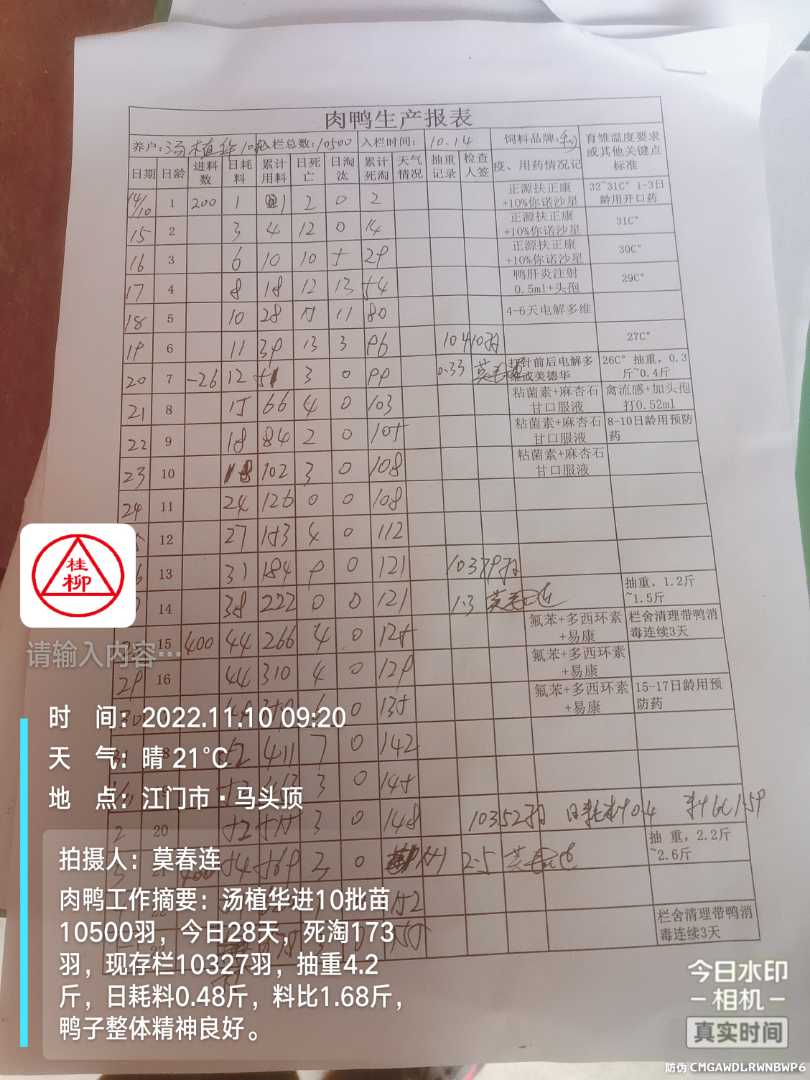 肉鸭生产报表
养户:汤植华10批 入栏总数:10500 入栏时间: 10.14 饲料品牌: 育雏温度要求或其他关键点标准
日期 日龄 进料数 日耗料 累计用料 日死亡 日淘汰 累计死淘 天气情况 抽重记录 检查人签 疫、用药情况记
14/10 1 200 1 1 2 0 2 正源扶正康+10%你诺沙星 32~31C° 1-3日龄用开口药
15 2 3 4 12 0 14 正源扶正康+10%你诺沙星 31C°
16 3 6 10 10 5 29 正源扶正康+10%你诺沙星 30C°
17 4 8 18 12 13 54 鸭肝炎注射0.5ml+头孢 29C°
18 5 10 28 15 11 80 4-6天电解多维
19 6 11 39 13 3 96 10410羽 27C°
20 7 -26 12 51 3 0 99 0.33 莫春连 打针前后电解多维或美德华 26C° 抽重，0.3斤~0.4斤
21 8 15 66 4 0 103 粘菌素+麻杏石甘口服液 禽流感+加头孢打0.52ml
22 9 18 84 2 0 105 粘菌素+麻杏石甘口服液 8-10日龄用预防药
23 10 18 102 3 0 108 粘菌素+麻杏石甘口服液
24 11 24 126 0 0 108
12 27 153 4 0 112
13 31 184 9 0 121 10379羽
14 38 222 0 0 121 1.3 莫春连 抽重，1.2斤~1.5斤
15 400 44 266 4 0 125 氟苯+多西环素+易康 栏舍清理带鸭消毒连续3天
29 16 44 310 4 0 129 氟苯+多西环素+易康
30 0 135 氟苯+多西环素+易康 15-17日龄用预防药
52 411 7 0 142
3 0 145
2 20 52 515 3 0 148 10352羽 日耗料0.4 料比1.59
54 569 3 0 151 2.5 莫春连 抽重，2.2斤~2.6斤
152
155 栏舍清理带鸭消毒连续3天
桂柳
请输入内容…
时 间：2022.11.10 09:20
天 气：晴 21℃
地 点：江门市·马头顶
拍摄人：莫春连
肉鸭工作摘要：汤植华进10批苗
10500羽，今日28天，死淘173
羽，现存栏10327羽，抽重4.2
斤，日耗料0.48斤，料比1.68斤，
鸭子整体精神良好。
今日水印
相机
真实时间
防伪 CMGAWDLRWNBWP6